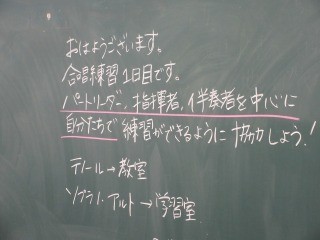 おはようございます。
合唱練習1日目です。
パートリーダー、指揮者、伴奏者を中心に
自分たちで練習ができるように協力しよう!
テノール→教室
ソプラノ、アルト→学習室